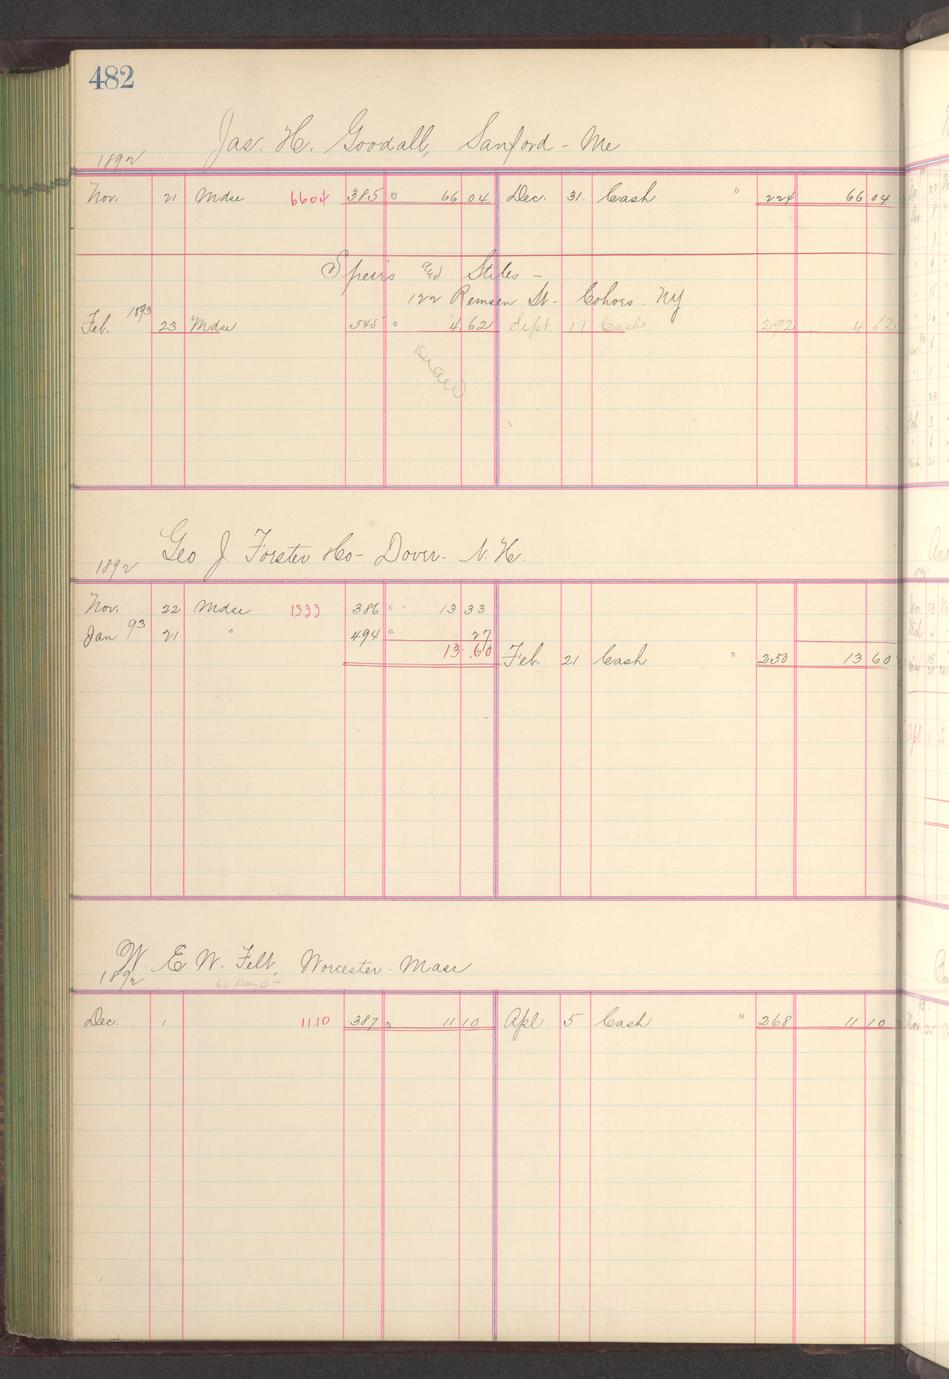 482
Jas. H. Goodall, Sanford - Me
1892
Nov. 21 Mdse 6604 385 66 04 Dec. 31. Cash 224 66 04
Speirs and Stiles -
122 Remsen St - Cohoes. NY
1893
Feb. 23 Mdse 545 4 62 Sept. 11 Cash 292 4 62
Geo J. Forster Co - Dover - N.H.
1892
Nov. 22 Mdse 1333 386 13 33
Jan 93 21 " 494 27
13.60 Feb. 21 Cash 250 13 60
W. E. W. Felt, Worcester - Mass
1892 60 Days -
Dec. 1 11.10 387 11 10 Apl 5 Cash 268 11 10